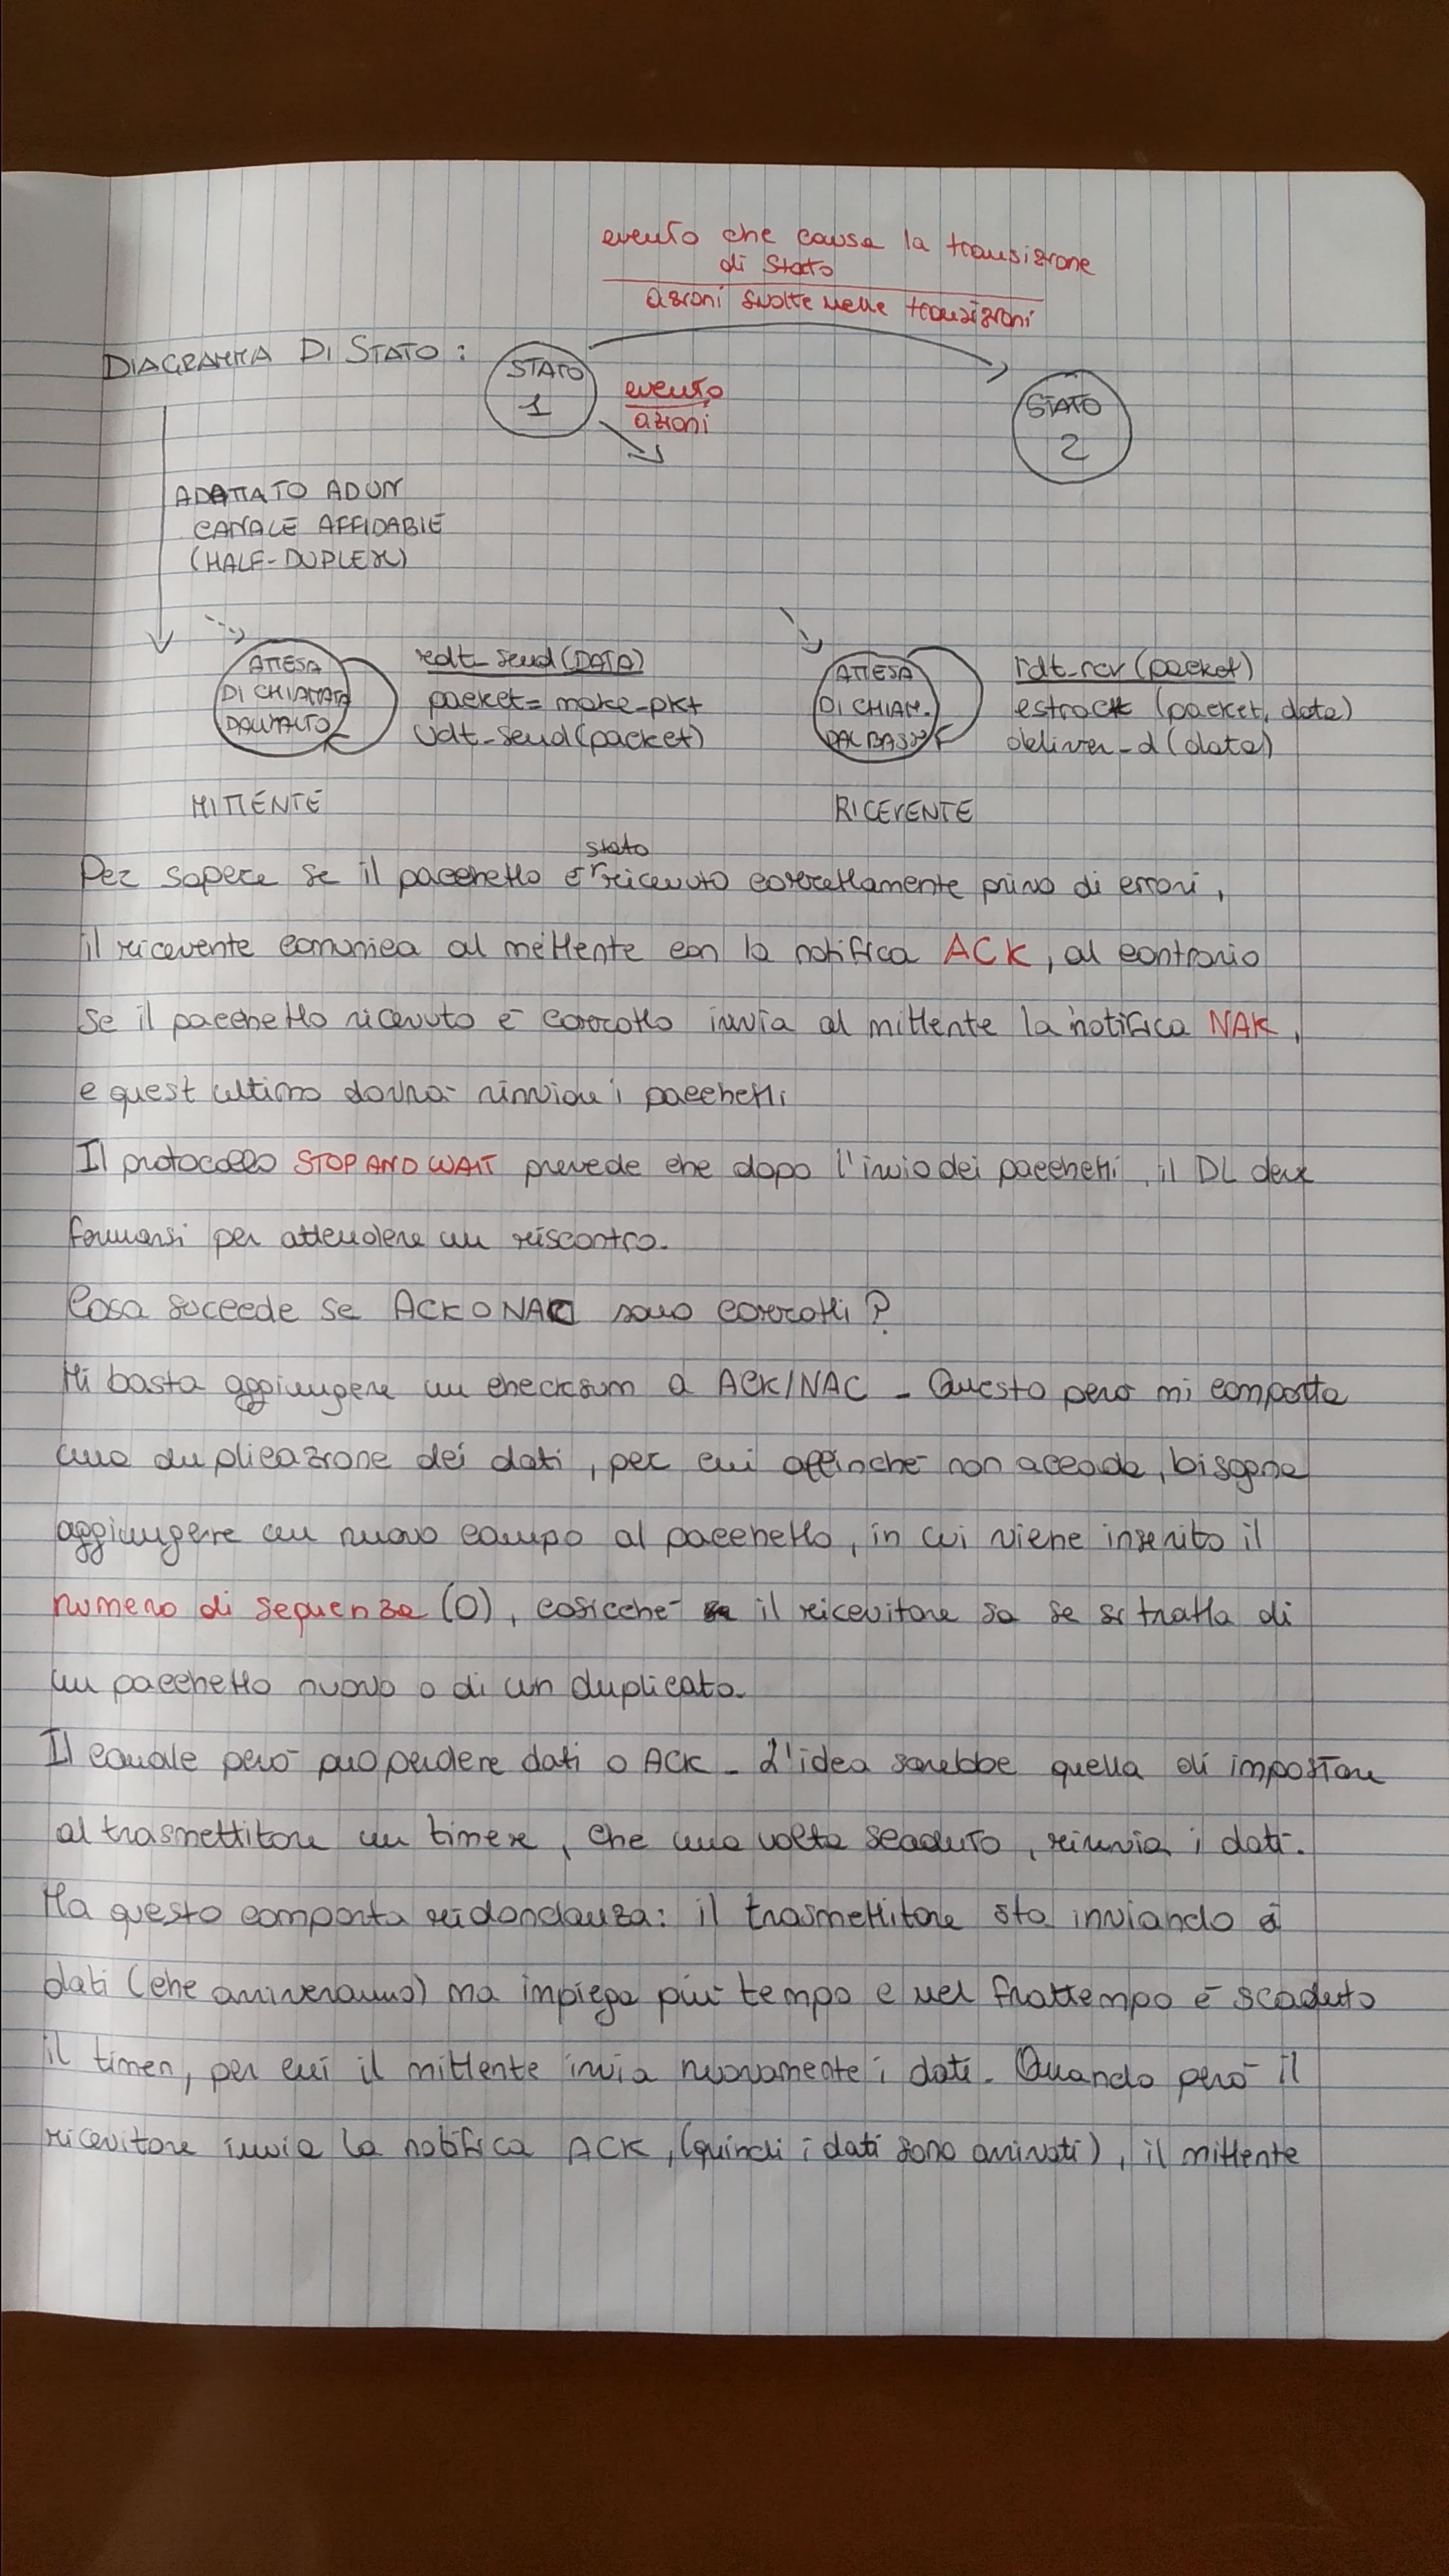 evento che causa la transizione
di stato
azioni svolte nelle transizioni
DIAGRAMMA DI STATO :
STATO
1
evento
azioni
STATO
2
ADATTATO AD UN
CANALE AFFIDABILE
(HALF-DUPLEX)
ATTESA
DI CHIAMATA
DALL'ALTO
rdt_send(DATA)
packet = make-pkt
udt_send(packet)
MITTENTE
ATTESA
DI CHIAM.
DAL BASSO
rdt_rcv (packet)
estract (packet, data)
deliver_d (data)
RICEVENTE
stato
Per sapere se il pacchetto è ricevuto correttamente privo di errori,
il ricevente comunica al mettente con la notifica ACK, al contrario
se il pacchetto ricevuto è corrotto invia al mittente la notifica NAK,
e quest'ultimo dovrà rinviare i pacchetti
Il protocollo STOP AND WAIT prevede che dopo l'invio dei pacchetti, il DL deve
fermarsi per attendere un riscontro.
Cosa succede se ACK O NAC sono corrotti?
Mi basta aggiungere un checksum a ACK/NAC - Questo però mi comporta
una duplicazione dei dati, per cui affinché non accada, bisogna
aggiungere un nuovo campo al pacchetto, in cui viene inserito il
numero di sequenza (0), cosicché il ricevitore sa se si tratta di
un pacchetto nuovo o di un duplicato.
Il canale però può perdere dati o ACK - L'idea sarebbe quella di impostare
al trasmettitore un timer, che una volta scaduto, rinvia i dati.
Ma questo comporta ridondanza: il trasmettitore sta inviando i
dati (che arriveranno) ma impiega più tempo e nel frattempo è scaduto
il timer, per cui il mittente invia nuovamente i dati. Quando però il
ricevitore invia la notifica ACK, (quindi i dati sono arrivati), il mittente